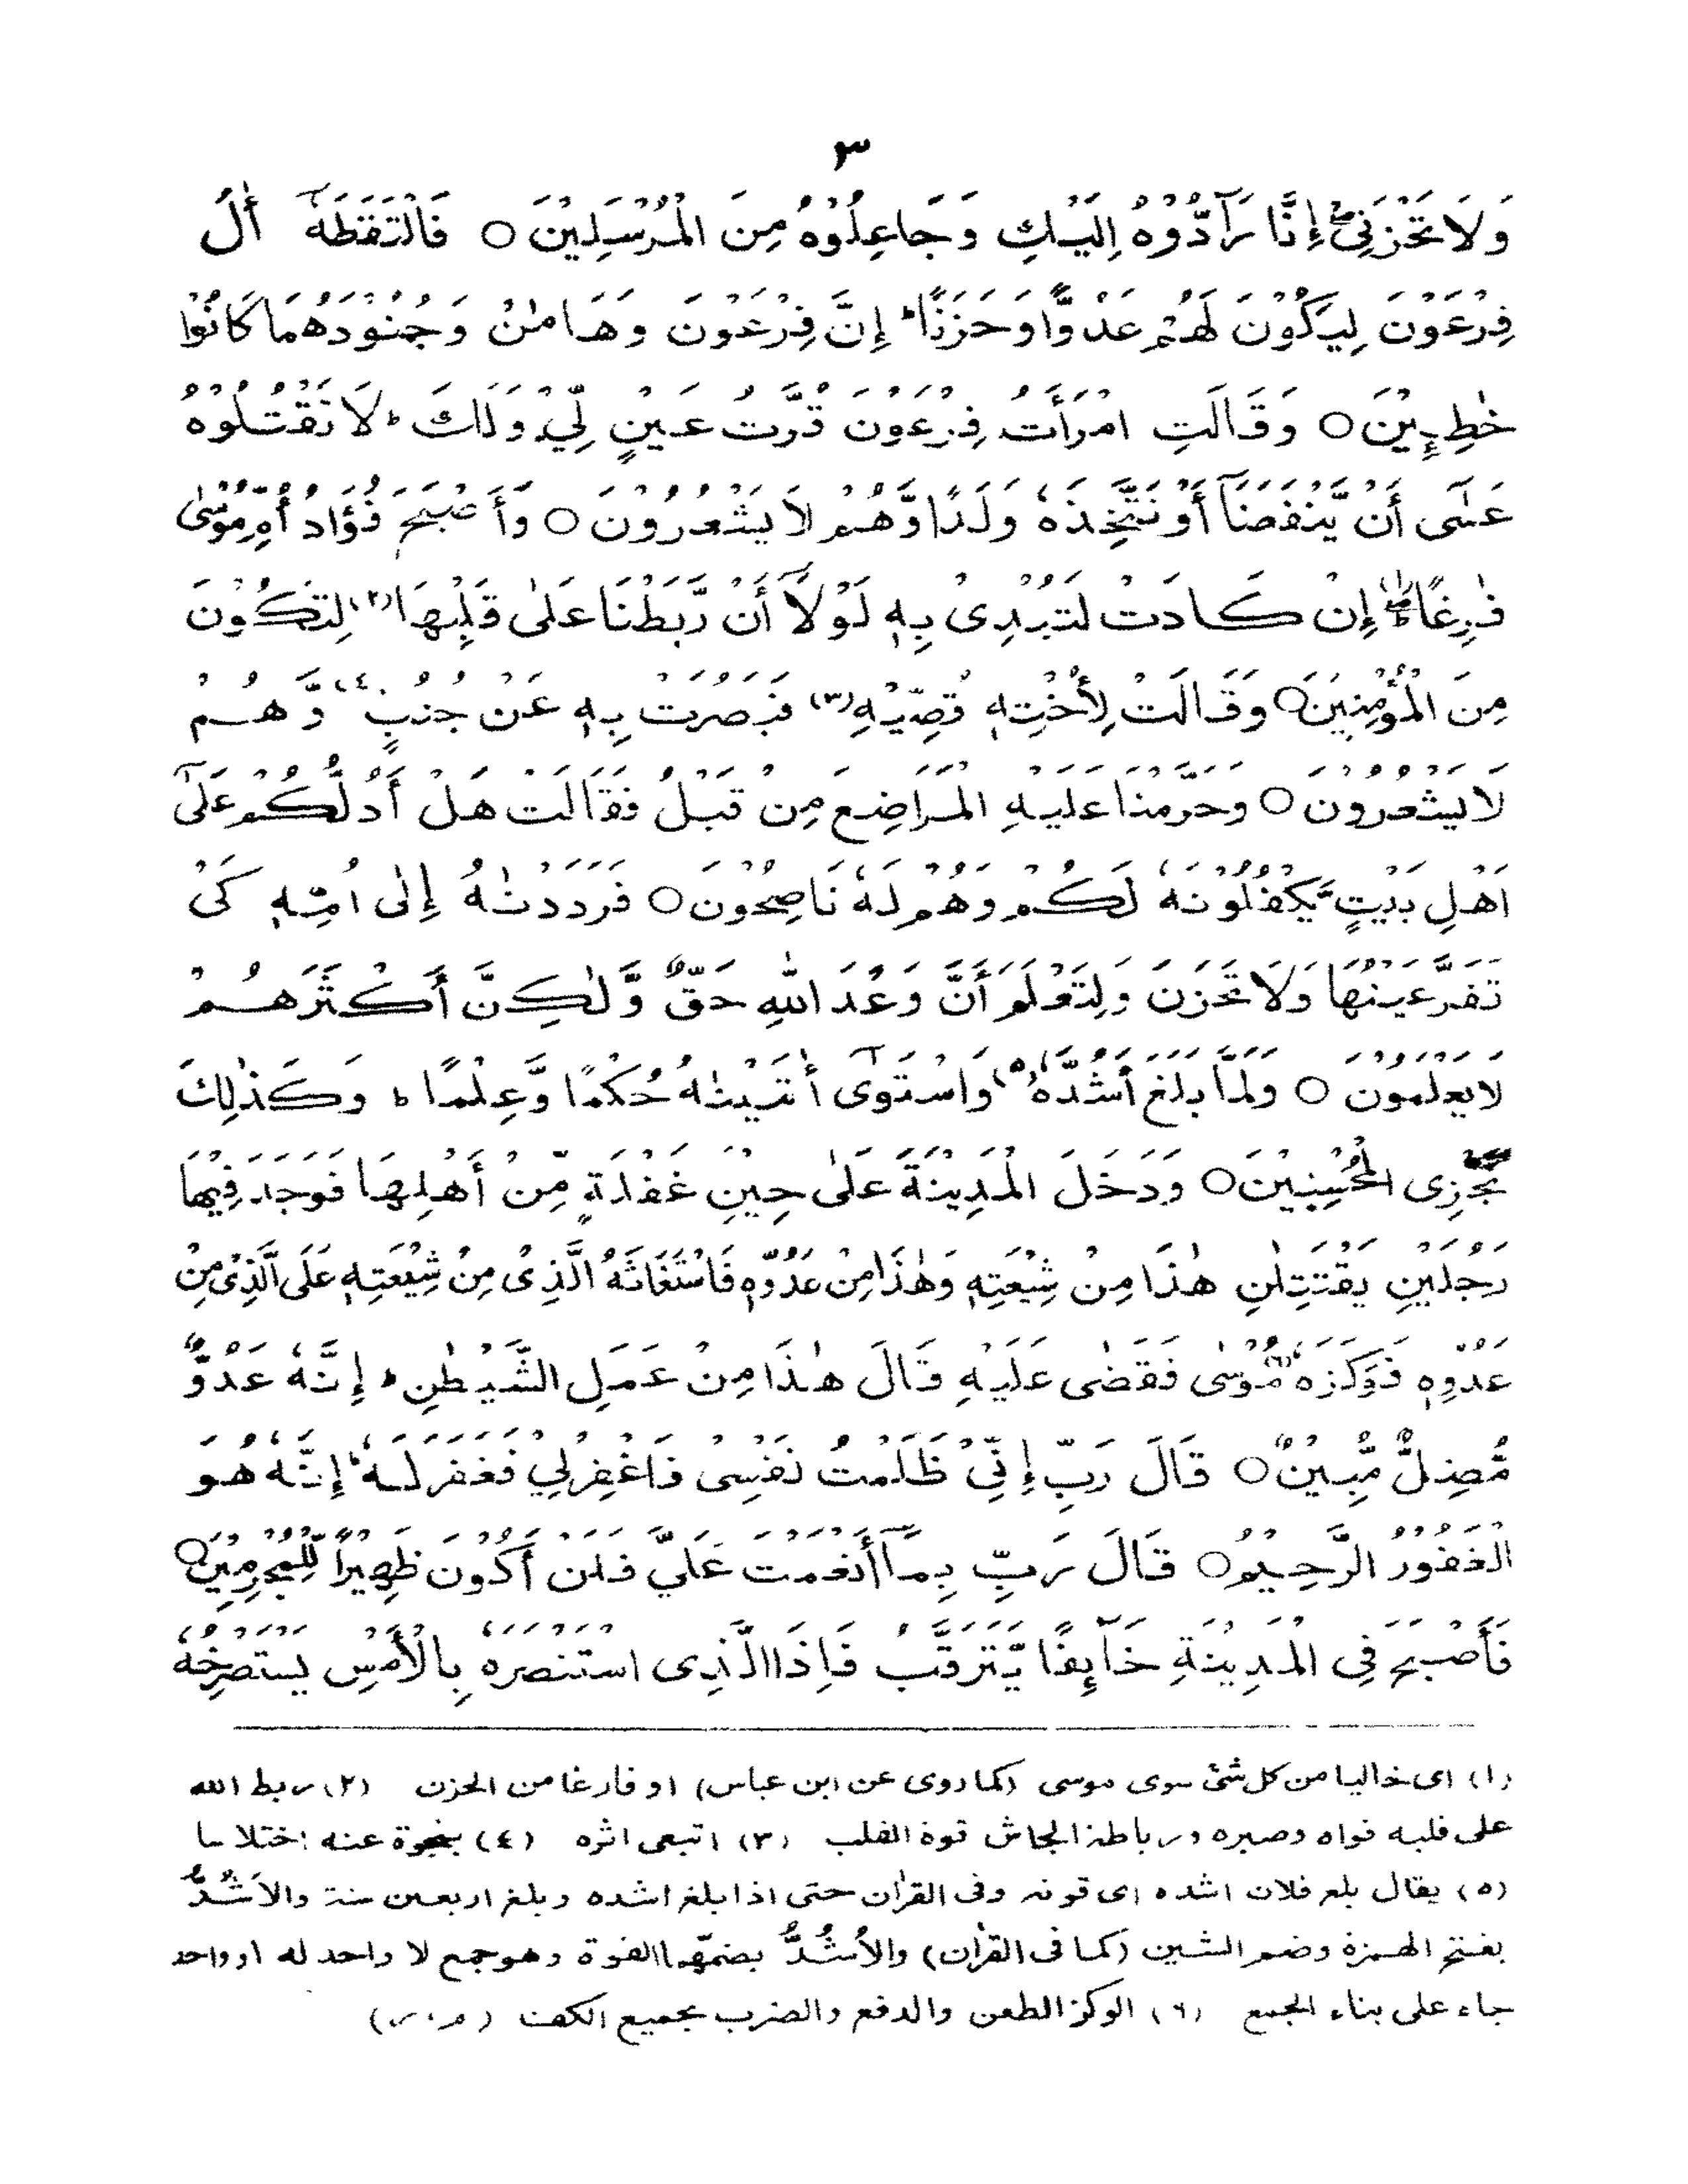 ٣
وَلَا تَحْزَنِيْ ۚ إِنَّا رَآدُّوْهُ اِلَيْكِ وَ جَاعِلُوْهُ مِنَ الْمُرْسَلِيْنَ ○ فَالْتَقَطَهٗٓ أٰلُ
فِرْعَوْنَ لِيَكُوْنَ لَهُمْ عَدُوًّا وَحَزَنًا ؕ إِنَّ فِرْعَوْنَ وَهَامٰنَ وَجُنُوْدَهُمَا كَانُوْا
خٰطِـِٕيْنَ ○ وَقَالَتِ امْرَأَتُ فِرْعَوْنَ قُرَّتُ عَيْنٍ لِّيْ وَلَكَ ؕ لَا تَقْتُلُوْهُ
عَسٰٓى أَنْ يَّنْفَعَنَآ أَوْ نَتَّخِذَهٗ وَلَدًا وَّهُمْ لَا يَشْعُرُوْنَ ○ وَأَصْبَحَ فُؤَادُ أُمِّ مُوْسٰى
فٰرِغًا (١) إِنْ كَادَتْ لَتُبْدِىْ بِهٖ لَوْلَآ أَنْ رَّبَطْنَا عَلٰى قَلْبِهَا (٢) لِتَكُوْنَ
مِنَ الْمُؤْمِنِيْنَ ○ وَقَالَتْ لِأُخْتِهٖ قُصِّيْهِ (٣) فَبَصُرَتْ بِهٖ عَنْ جُنُبٍ (٤) وَّهُمْ
لَا يَشْعُرُوْنَ ○ وَحَرَّمْنَا عَلَيْهِ الْمَرَاضِعَ مِنْ قَبْلُ فَقَالَتْ هَلْ أَدُلُّكُمْ عَلٰٓى
اَهْلِ بَيْتٍ يَّكْفُلُوْنَهٗ لَكُمْ وَهُمْ لَهٗ نَاصِحُوْنَ ○ فَرَدَدْنٰهُ إِلٰى اُمِّهٖ كَىْ
تَقَرَّ عَيْنُهَا وَلَا تَحْزَنَ وَلِتَعْلَمَ أَنَّ وَعْدَ اللهِ حَقٌّ وَّلٰكِنَّ أَكْثَرَهُمْ
لَا يَعْلَمُوْنَ ○ وَلَمَّا بَلَغَ أَشُدَّهٗ (٥) وَاسْتَوٰٓى أٰتَيْنٰهُ حُكْمًا وَّعِلْمًا ؕ وَكَذٰلِكَ
نَجْزِى الْمُحْسِنِيْنَ ○ وَدَخَلَ الْمَدِيْنَةَ عَلٰى حِيْنِ غَفْلَةٍ مِّنْ أَهْلِهَا فَوَجَدَ فِيْهَا
رَجُلَيْنِ يَقْتَتِلٰنِ هٰذَا مِنْ شِيْعَتِهٖ وَهٰذَا مِنْ عَدُوِّهٖ فَاسْتَغَاثَهُ الَّذِىْ مِنْ شِيْعَتِهٖ عَلَى الَّذِىْ مِنْ
عَدُوِّهٖ فَوَكَزَهٗ (٦) مُوْسٰى فَقَضٰى عَلَيْهِ قَالَ هٰذَا مِنْ عَمَلِ الشَّيْطٰنِ ؕ إِنَّهٗ عَدُوٌّ
مُّضِلٌّ مُّبِيْنٌ ○ قَالَ رَبِّ إِنِّىْ ظَلَمْتُ نَفْسِىْ فَاغْفِرْلِيْ فَغَفَرَ لَهٗ ؕ إِنَّهٗ هُوَ
الْغَفُوْرُ الرَّحِيْمُ ○ قَالَ رَبِّ بِمَآ أَنْعَمْتَ عَلَيَّ فَلَنْ أَكُوْنَ ظَهِيْرًا لِّلْمُجْرِمِيْنَ ○
فَأَصْبَحَ فِى الْمَدِيْنَةِ خَآئِفًا يَّتَرَقَّبُ فَاِذَا الَّذِى اسْتَنْصَرَهٗ بِالْأَمْسِ يَسْتَصْرِخُهٗ
(١) اى خاليا من كل شئ سوى موسى (كما روى عن ابن عباس) او فارغا من الحزن (٢) ربط الله
على قلبه قواه وصبره ورباطة الجاش قوة القلب (٣) اتبعى اثره (٤) بنجوة عنه اختلاسا
(٥) يقال بلغ فلان اشده اى قوته وفى القرٰان حتى اذا بلغ اشده وبلغ اربعين سنة والاَشُدُّ
بفتح الهمزة وضم الشين (كما فى القرٰان) والاُشُدُّ بضمّها القوة وهو جمع لا واحد له او واحد
جاء على بناء الجمع (٦) الوكز الطعن والدفع والضرب بجميع الكف (م، ر)